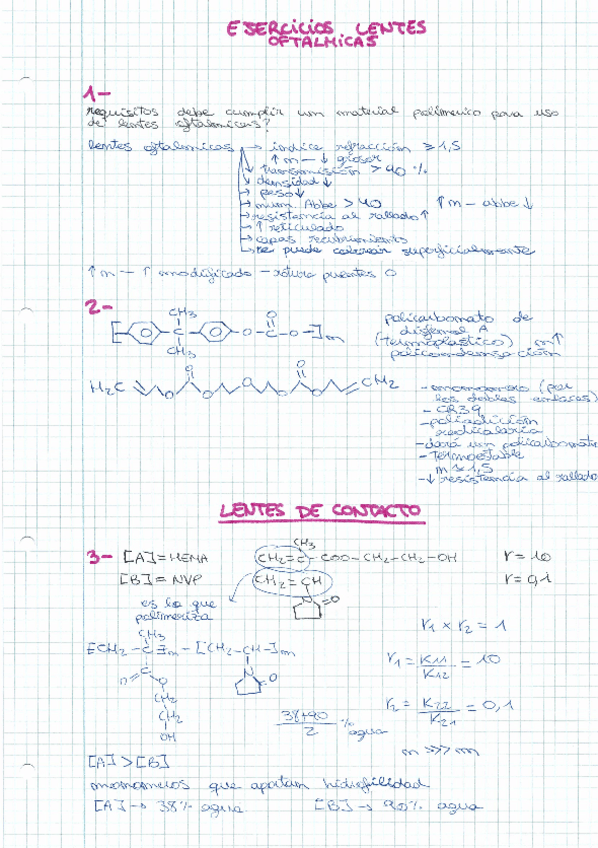 EJERCICIOS LENTES
OFTALMICAS
1-
requisitos debe cumplir un material polimerico para uso
de lentes oftalmicas?
lentes oftalmicas → indice refracción ≥ 1,5
↑ n — ↓ grosor
→ transmisión > 90 %
→ densidad ↓
→ peso ↓
→ num. Abbe > 40 ↑ n — abbe ↓
→ resistencia al rallado ↑
→ ↑ reticulado
→ capas recubrimiento
→ se puede colorear superficialmente
↑ n — ↑ - rotura puentes O
2-
CH3
[ - C - - O - C - O - ]n
O
CH3
policarbonato de
disfenol A
(termoplastico) n↑
policondensación
H2C O O O O O O O CH2
- monomero (por
los dobles enlaces)
- CR39
- poliadición
radicalaria
- dará un policarbonato
- Termoestable
n ≈ 1,5
- ↓ resistencia al rallado
LENTES DE CONTACTO
3- [A] = HEMA CH2 = C - COO - CH2 - CH2 - OH r = 10
CH3
[B] = NVP CH2 = CH r = 0,1
N =O
es lo que
polimeriza
r1 × r2 = 1
CH3
[CH2 - C]n - [CH2 - CH -]m
O = C N O
O
CH2
CH2
OH
r1 = K11 / K12 = 10
r2 = K22 / K21 = 0,1
38+90 / 2 % agua
n >>> m
[A] > [B]
monomeros que aportan hidrofilidad
[A] → 38% agua [B] → 90% agua